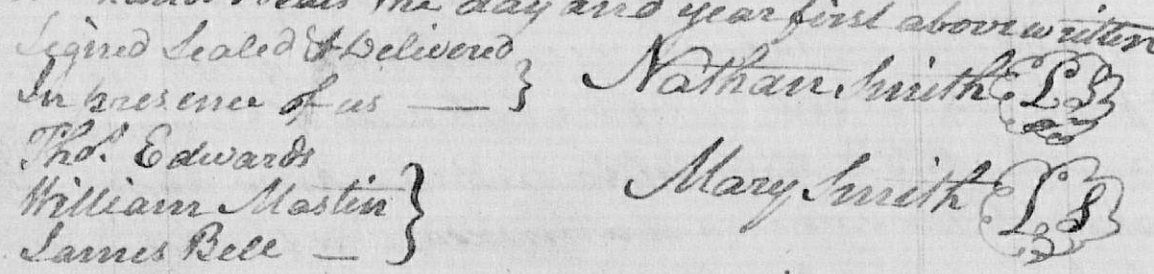 hands & seals the day and year first above written
Signed Sealed & Delivered
In presence of us —
Nathan Smith LS
Thos. Edwards
William Mastin
James Bell —
Mary Smith LS